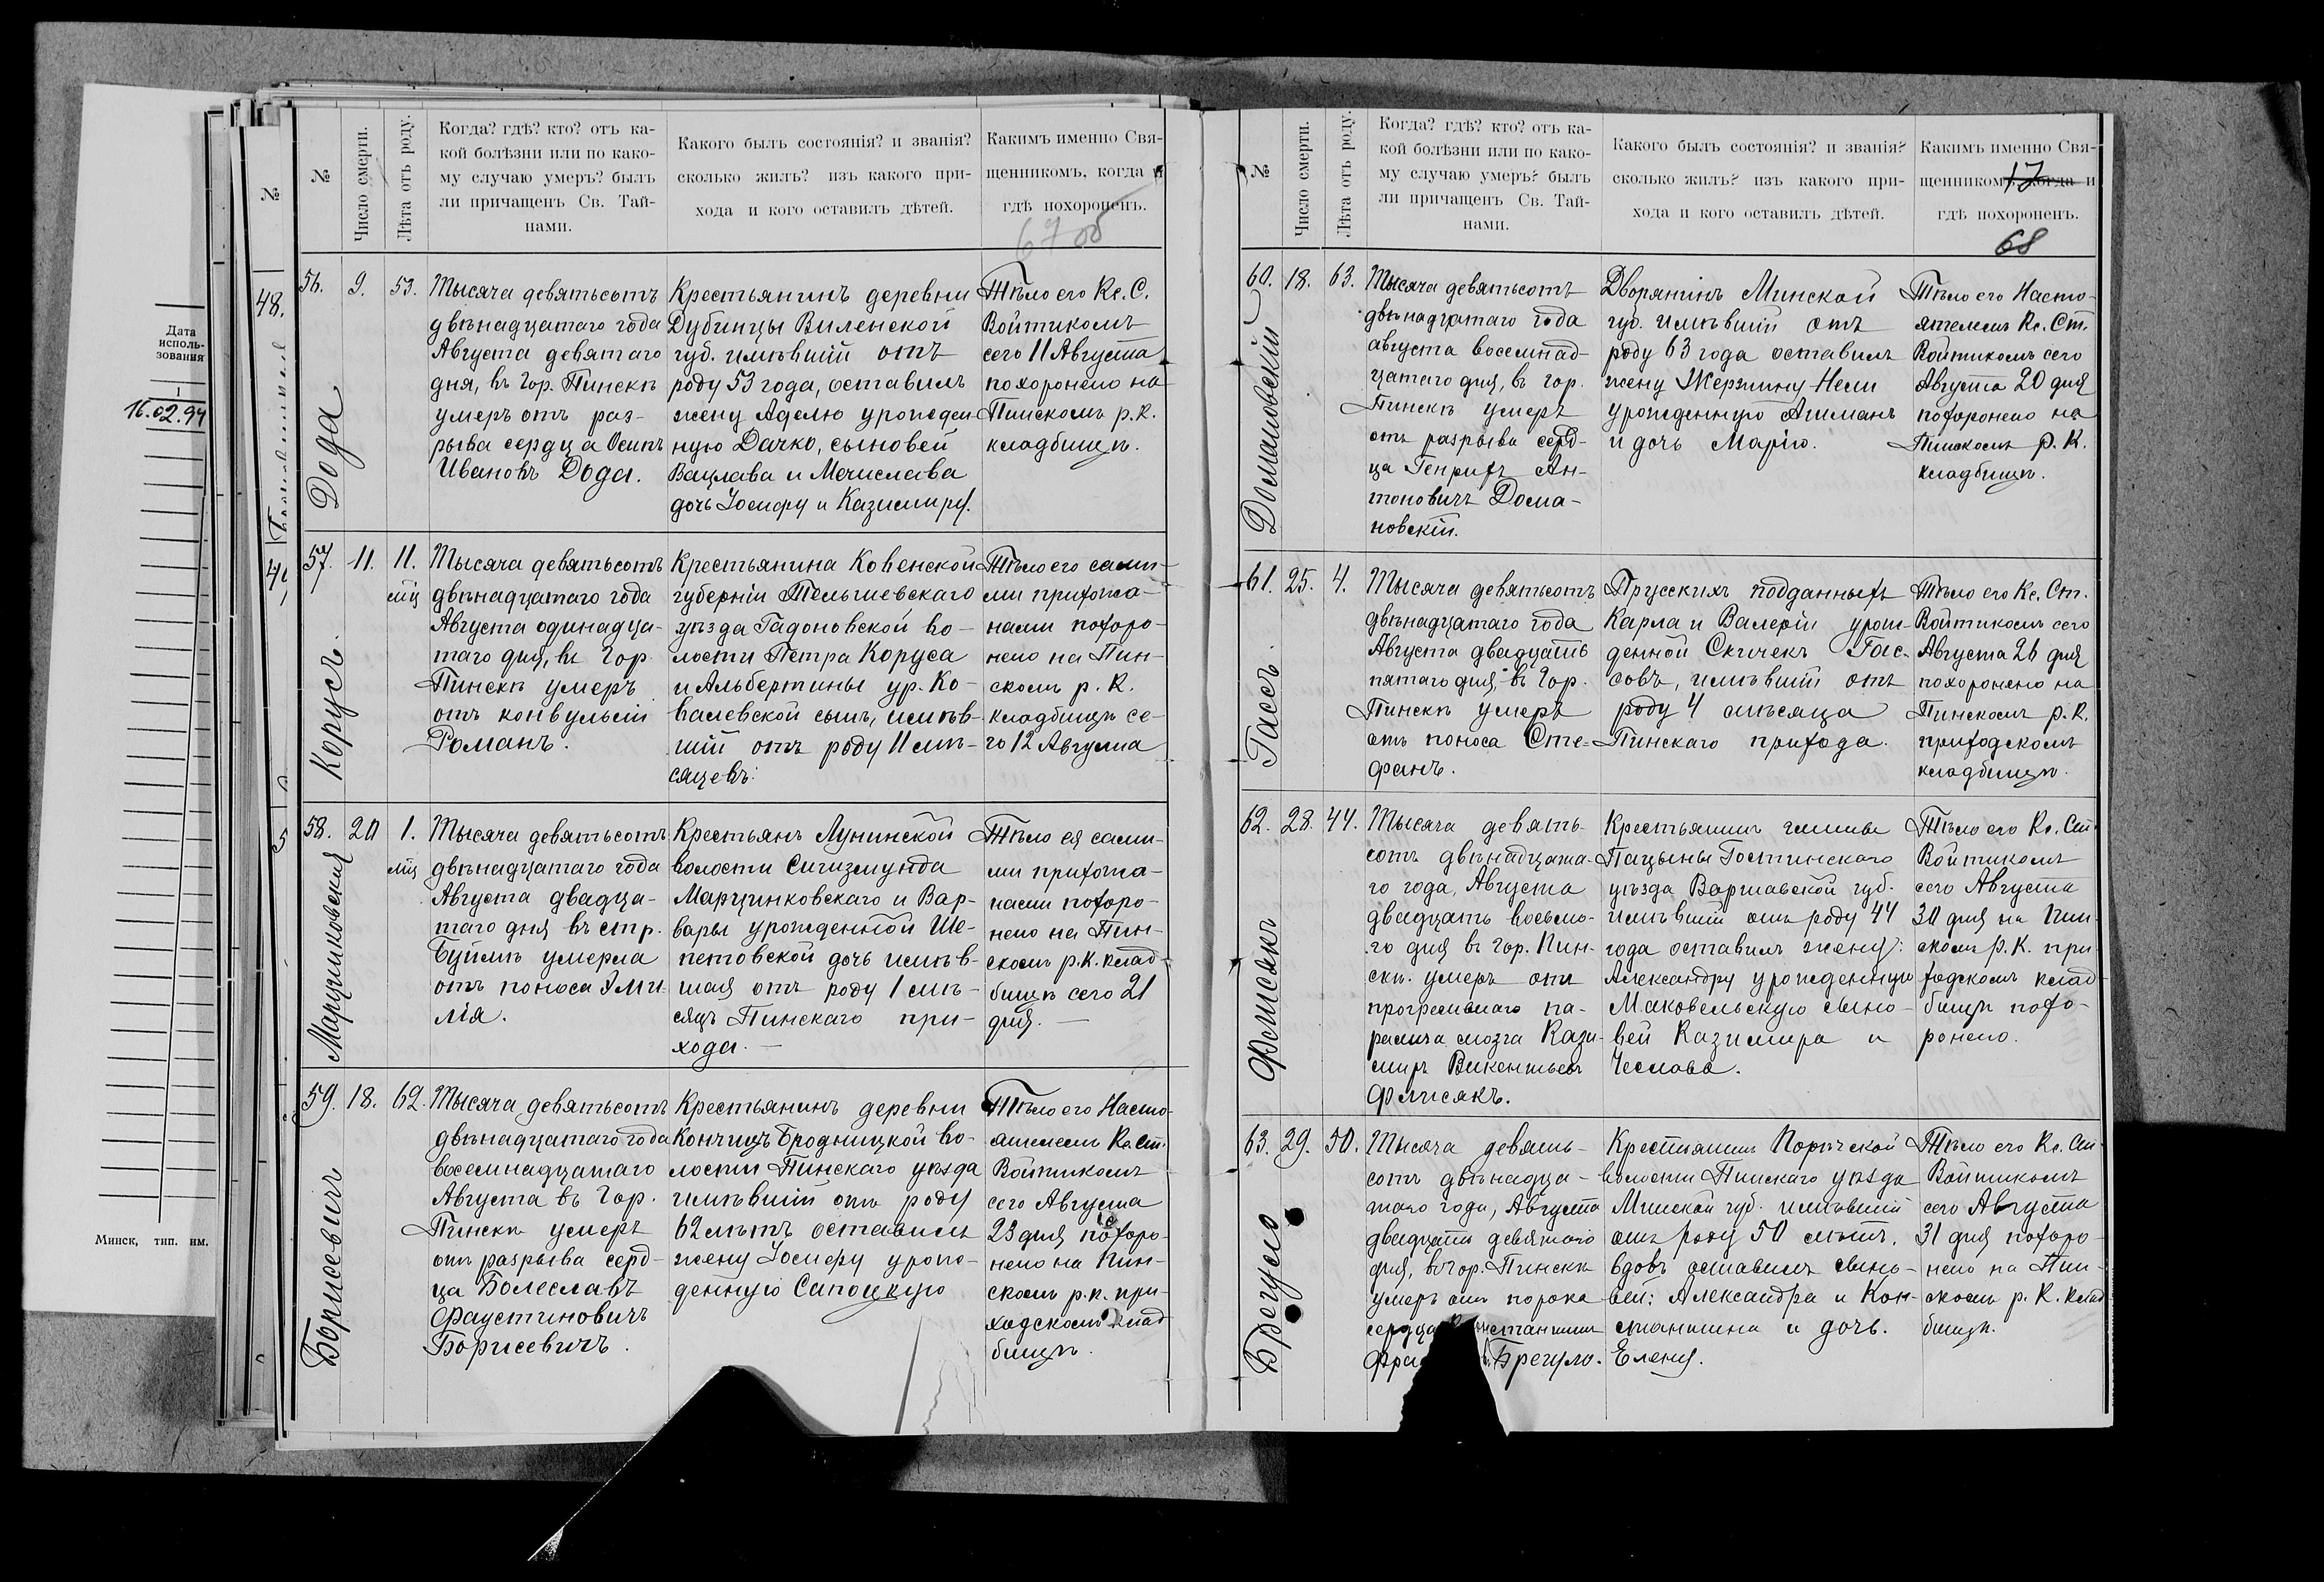 Дата
исполь-
зования
1
16.02.94
Минск, тип. им.
№
48.
5
№
Число смерти.
Лѣта отъ роду.
Когда? гдѣ? кто? отъ ка-
кой болѣзни или по како-
му случаю умеръ? былъ
ли причащенъ Св. Тай-
нами.
Какого былъ состоянія? и званія?
сколько жилъ? изъ какого при-
хода и кого оставилъ дѣтей.
Какимъ именно Свя-
щенникомъ, когда и
гдѣ похороненъ.
67 об
56.
9.
53.
Дода
Тысяча девятьсотъ
двѣнадцатаго года
Августа девятаго
дня, въ гор. Пинскѣ
умеръ отъ раз-
рыва сердца Осипъ
Ивановъ Дода.
Крестьянинъ деревни
Дубинцы Виленской
губ. имѣвшій отъ
роду 53 года, оставилъ
жену Аделю урожден-
ную Дачко, сыновей
Вацлава и Мечислава
дочь Іосифу и Казимиру.
Тѣло его Кс. С.
Войтикомъ
сего 11 Августа
похоронено на
Пинскомъ р. к.
кладбищѣ.
57.
11.
11.
мц
Корусъ.
Тысяча девятьсотъ
двѣнадцатаго года
Августа одинадца-
таго дня, въ гор.
Пинскѣ умеръ
отъ конвульсій
Романъ.
Крестьянина Ковенской
губерніи Тельшевскаго
уѣзда Гадоновской во-
лости Петра Коруса
и Альбертины ур. Ко-
валевской сынъ, имѣв-
шій отъ роду 11 мѣ-
сяцевъ.
Тѣло его сами-
ми прихожа-
нами похоро-
нено на Пин-
скомъ р. к.
кладбищѣ се-
го 12 Августа
58.
20
1.
мц
Марцинковская
Тысяча девятьсотъ
двѣнадцатаго года
Августа двадца-
таго дня въ стр.
Буймѣ умерла
отъ поноса Эми-
лія.
Крестьянъ Лунинской
волости Сигизмунда
Марцинковскаго и Вар-
вары урожденной Ше-
петовской дочь имѣв-
шая отъ роду 1 мѣ-
сяцъ Пинскаго при-
хода. —
Тѣло ея сами-
ми прихожа-
нами похоро-
нено на Пин-
скомъ р.к. клад-
бищѣ сего 21
дня. —
59.
18.
62.
Борисевичъ
Тысяча девятьсотъ
двѣнадцатаго года
восемнадцатаго
Августа въ гор.
Пинскѣ умеръ
отъ разрыва серд-
ца Болеславъ
Фаустиновичъ
Борисевичъ.
Крестьянинъ деревни
Кончицъ Бродницкой во-
лости Пинскаго уѣзда
имѣвшій отъ роду
62 лѣтъ оставилъ
жену Іосифу урож-
денную Сапоцкую
Тѣло его Насто-
ятелемъ Кс. Ст.
Войтикомъ
сего Августа
23 дня похоро-
нено на Пин-
скомъ р.к. при-
ходскомъ клад
бищѣ.
№
Число смерти.
Лѣта отъ роду.
Когда? гдѣ? кто? отъ ка-
кой болѣзни или по како-
му случаю умеръ? былъ
ли причащенъ Св. Тай-
нами.
Какого былъ состоянія? и званія?
сколько жилъ? изъ какого при-
хода и кого оставилъ дѣтей.
Какимъ именно Свя-
щенникомъ, когда и
гдѣ похороненъ.
17
68
60.
18.
63.
Домановскій
Тысяча девятьсотъ
двѣнадцатаго года
августа восемнад-
цатаго дня, въ гор.
Пинскѣ умеръ
отъ разрыва серд-
ца Генрихъ Ан-
тоновичъ Дома-
новскій.
Дворянинъ Минской
губ. имѣвшій отъ
роду 63 года оставилъ
жену
урожденную
и дочь Марію.
Тѣло его Насто-
ятелемъ Кс. Ст.
Войтикомъ сего
Августа 20 дня
похоронено на
Пинскомъ р. к.
кладбищѣ.
61.
25.
4.
Гасъ.
Тысяча девятьсотъ
двѣнадцатаго года
Августа двадцать
пятаго дня, въ гор.
Пинскѣ умеръ
отъ поноса Сте-
фанъ.
Прусскихъ подданныхъ
Карла и Валеріи урож-
денной Скичекъ Гас-
совъ, имѣвшій отъ
роду 4 мѣсяца
Пинскаго прихода.
Тѣло его Кс. Ст.
Войтикомъ сего
Августа 26 дня
похоронено на
Пинскомъ р. к.
приходскомъ
кладбищѣ.
62.
28.
44.
Фимсякъ
Тысяча девять-
сотъ двѣнадцата-
го года, Августа
двадцать восьмо-
го дня въ гор. Пин-
скѣ умеръ отъ
прогресивнаго па-
ралича мозга Кази-
миръ Викентьевъ
Крестьянинъ гмины
Пацыны Гостинскаго
уѣзда Варшавской губ.
имѣвшій отъ роду 44
года оставилъ жену:
Александру урожденную
Маковельскую сыно-
вей Казимира и
Чеслава.
Тѣло его Кс. Ст.
Войтикомъ
сего Августа
30 дня на Пин-
скомъ р. к. при-
ходскомъ клад-
бищѣ похо-
ронено.
63.
29.
50.
Брегуло
Тысяча девять-
сотъ двѣнадца-
таго года, Августа
двадцать девятаго
дня, въ гор. Пинскѣ
умеръ отъ порока
сердца
Брегуло.
Крестьянинъ Порѣчской
волости Пинскаго уѣзда
Минской губ. имѣвшій
отъ роду 50 лѣтъ.
вдовъ оставилъ сыно-
вей: Александра и Кон-
стантина и дочь.
Елену.
Тѣло его Кс. Ст.
Войтикомъ
сего Августа
31 дня похоро-
нено на Пин-
скомъ р. к. клад
бищѣ.